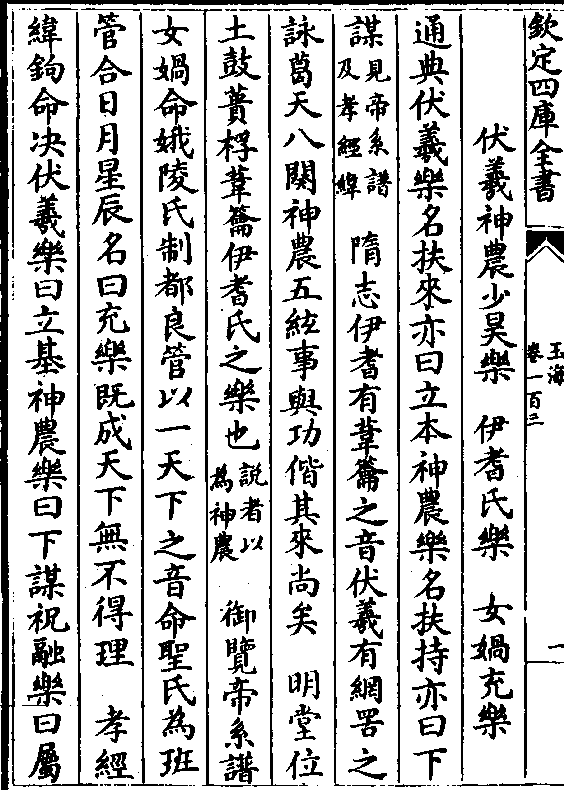 欽定四庫全書
玉海
卷一百三
一
伏羲神農少昊樂 伊耆氏樂 女媧充樂
通典伏羲樂名扶來亦曰立本神農樂名扶持亦曰下
謀見帝系譜及孝經緯 隋志伊耆有葦籥之音伏羲有網罟之
詠葛天八闋神農五絃事與功偕其來尚矣 明堂位
土鼓蕢桴葦籥伊耆氏之樂也說者以為神農 御覽帝系譜
女媧命娥陵氏制都良管以一天下之音命聖氏為班
管合日月星辰名曰充樂既成天下無不得理 孝經
緯鉤命决伏羲樂曰立基神農樂曰下謀祝融樂曰屬